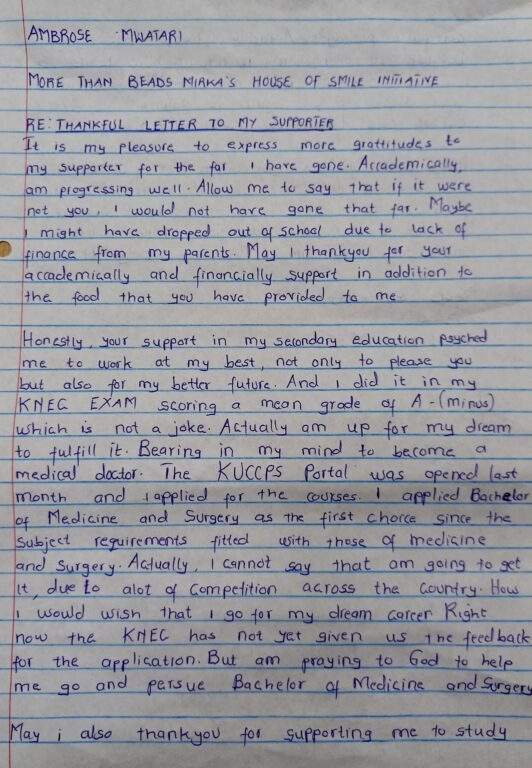 AMBROSE MWATARI
MORE THAN BEADS NIRKA'S HOUSE OF SMILE INITIATIVE
RE: THANKFUL LETTER TO MY SUPPORTER
It is my pleasure to express more grattitudes to
my supporter for the far I have gone. Accademically,
am progressing well. Allow me to say that if it were
not you, I would not have gone that far. Maybe
I might have dropped out of school due to lack of
finance from my parents. May I thankyou for your
accademically and financially support in addition to
the food that you have provided to me.
Honestly, your support in my secondary education psyched
me to work at my best, not only to please you
but also for my better future. And I did it in my
KNEC EXAM scoring a mean grade of A-(minus)
which is not a joke. Actually am up for my dream
to fulfill it. Bearing in my mind to become a
medical doctor. The KUCCPS Portal was opened last
month and I applied for the courses. I applied Bachelor
of Medicine and Surgery as the first choice since the
subject requirements fitted with those of medicine
and surgery. Actually, I cannot say that am going to get
it, due to alot of competition across the country. How
I would wish that I go for my dream career Right
now the KNEC has not yet given us the feedback
for the application. But am praying to God to help
me go and persue Bachelor of Medicine and Surgery
May i also thankyou for supporting me to study